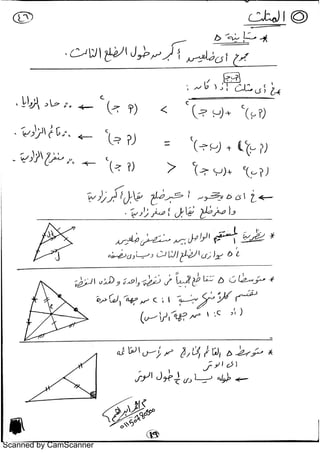 ٤٦
المثلث
* متباينة Δ
مجموع أى ضلعين أكبر من طول الضلع الثالث .
فى أى مثلث إذا كان :
(٢ ب)² + (ب جـ)² > (٢ جـ)² ← حاد الزوايا .
(٢ ب)² + (ب جـ)² = (٢ جـ)² ← قائم الزاوية .
(٢ ب)² + (ب جـ)² < (٢ جـ)² ← منفرج الزاوية .
← فى أى Δ أكبر ضلع يقابل أكبر زاوية
وأصغر ضلع يقابل أصغر زاوية .
* نظرية المستقيم الواصل بين منتصفى ضلعين
فى Δ يوازى الضلع الثالث ويساوى نصفه
* متوسطات Δ تتقاطع جميعاً فى نقطة واحدة وهذه النقطة
تقسم كلاً منها بنسبة ١ : ٢ من جهة القاعدة
(أو ٢ : ١ من جهة الرأس)
* متوسط Δ القائم الخارج من رأس القائمة
الى الوتر
← طوله يساوى ½ طول الوتر
٤٦
Scanned by CamScanner